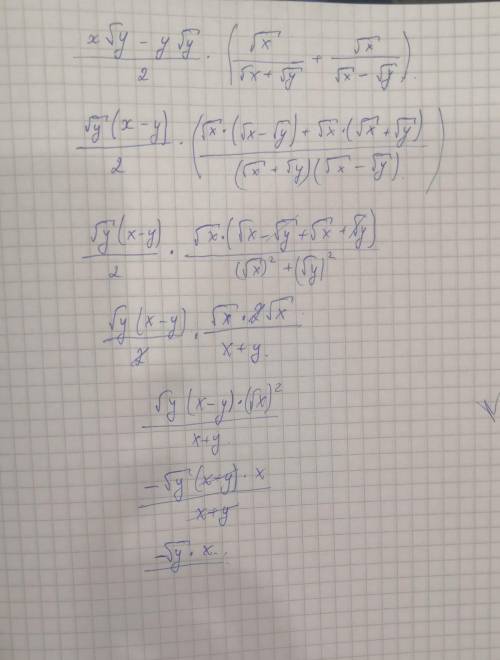 (x√y - y√y)/2 · (√x/(√x + √y) + √x/(√x - √y))
√y(x-y)/2 · ((√x·(√x-√y)+√x·(√x+√y))/((√x+√y)(√x-√y)))
√y(x-y)/2 · √x·(√x-√y+√x+√y)/((√x)²+(√y)²)
√y(x-y)/2 · √x·2√x/(x+y)
√y(x-y)·(√x)²/(x+y)
-√y(x+y)·x/(x+y)
-√y·x